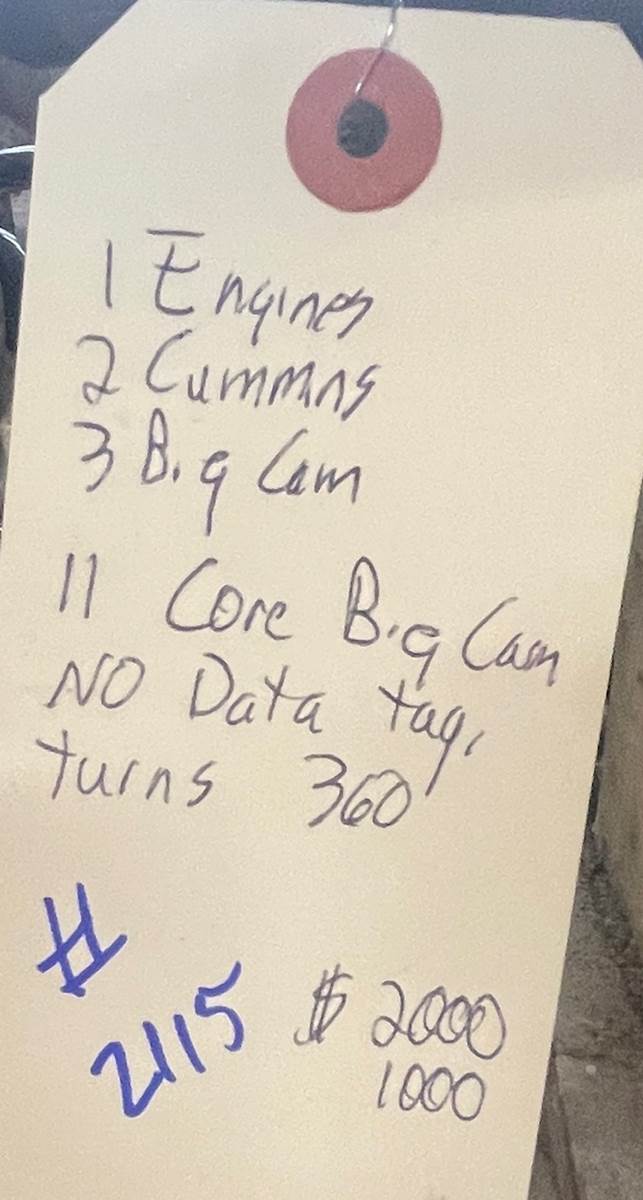 1 Engines
2 Cummns
3 Big Cam
11 Core Big Cam
NO Data tag,
turns 360
#
2115
$ 2000
1000